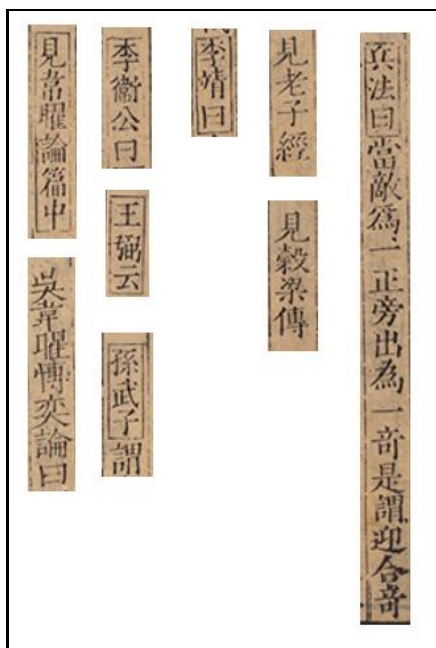 兵法曰當敵爲一正旁出為一竒是謂迎合竒
見老子經
見穀梁傳
李靖曰
李衞公曰
王弼云
孫武子謂
見韋曜論篇中
吳韋曜愽奕論曰